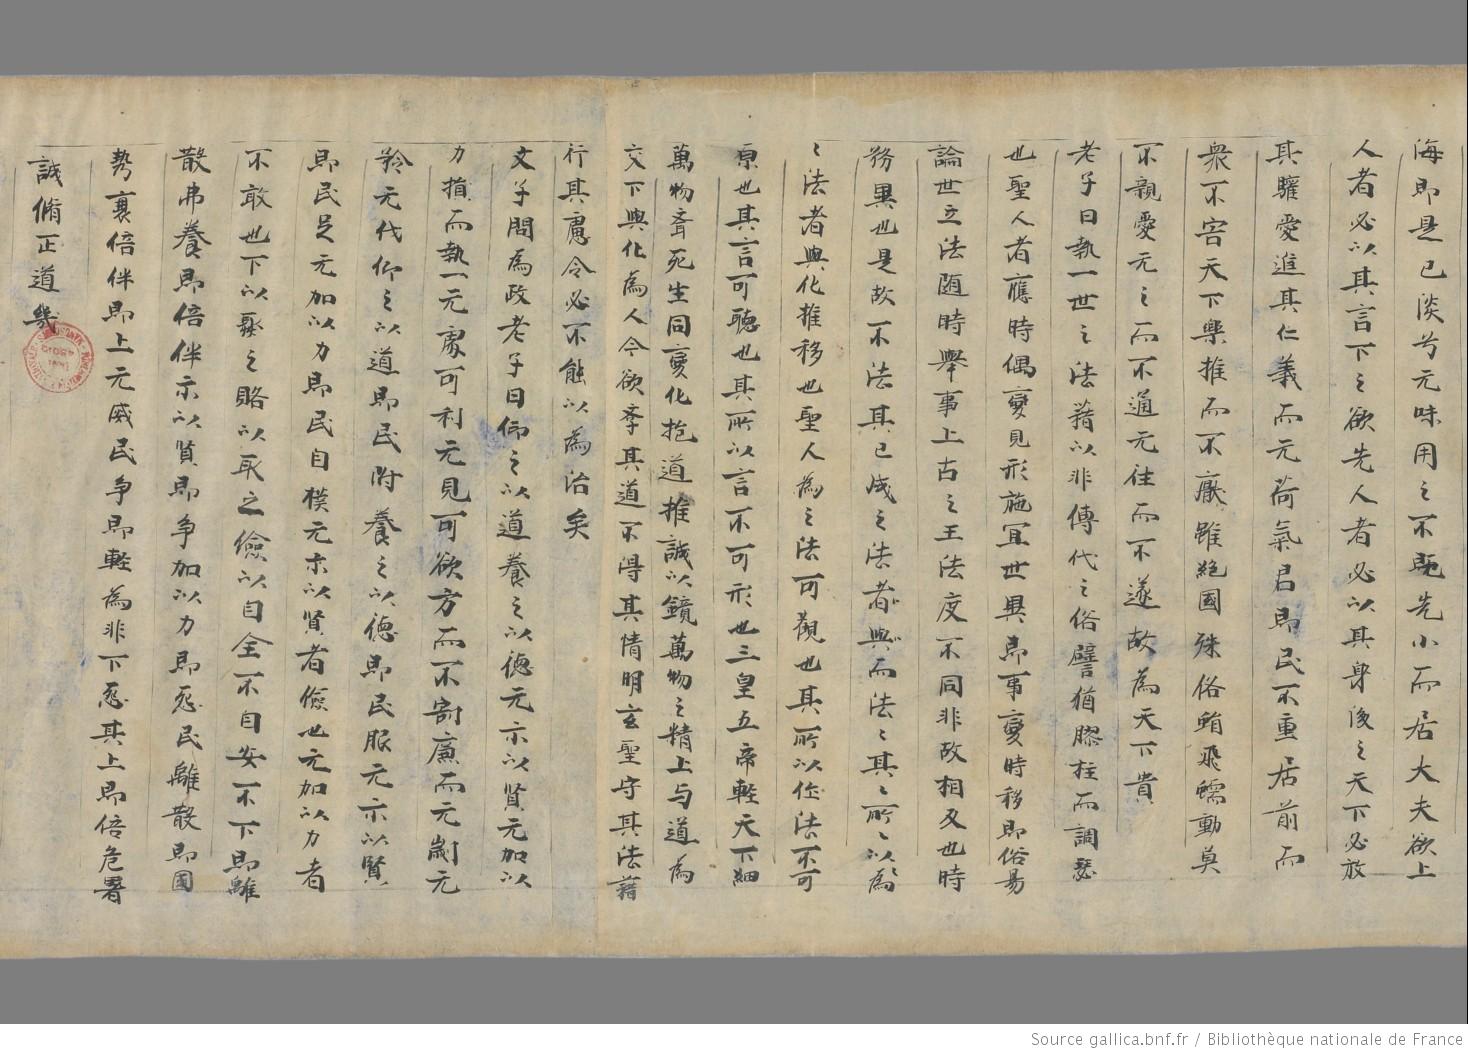 海即是已淡兮无味用之不既先小而居大夫欲上
人者必以其言下之欲先人者必以其身後之天下必放
其驩愛進其仁義而无苛氣居即民不重居前而
衆不害天下樂推而不厭雖絶國殊俗蜎飛蠕動莫
不親愛无之而不通无往而不遂故為天下貴
老子曰執一世之法藉以非傳代之俗譬猶膠柱而調瑟
也聖人者應時偶變見形施冝世異即事變時移即俗易
論世立法随時舉事上古之王法度不同非故相反也時
務異也是故不法其已成之法者與而法〻其〻所〻以為
〻法者與化推移也聖人為之法可觀也其所以作法不可
原也其言可聽也其所以言不可形也三皇五帝輕天下細
萬物齊死生同變化抱道推誠以鏡萬物之精上与道為
交下與化為人今欲學其道不得其情明玄聖守其法藉
行其憲令必不能以為治矣
文子問為政老子曰御之以道養之以德无示以賢无加以
力損而執一无處可利无見可欲方而不割廉而无劌无
矜无伐御之以道即民附養之以德即民服无示以賢
即民足无加以力即民自樸无示以賢者儉也无加以力者
不敢也下以聚之賂以取之儉以自全不自安不下即離
散弗養即倍伴示以賢即争加以力即惌民離散即國
勢衰倍伴即上无威民争即輕為非下惌其上即倍危署
誠脩正道幾
Source gallica.bnf.fr / Bibliothèque nationale de France